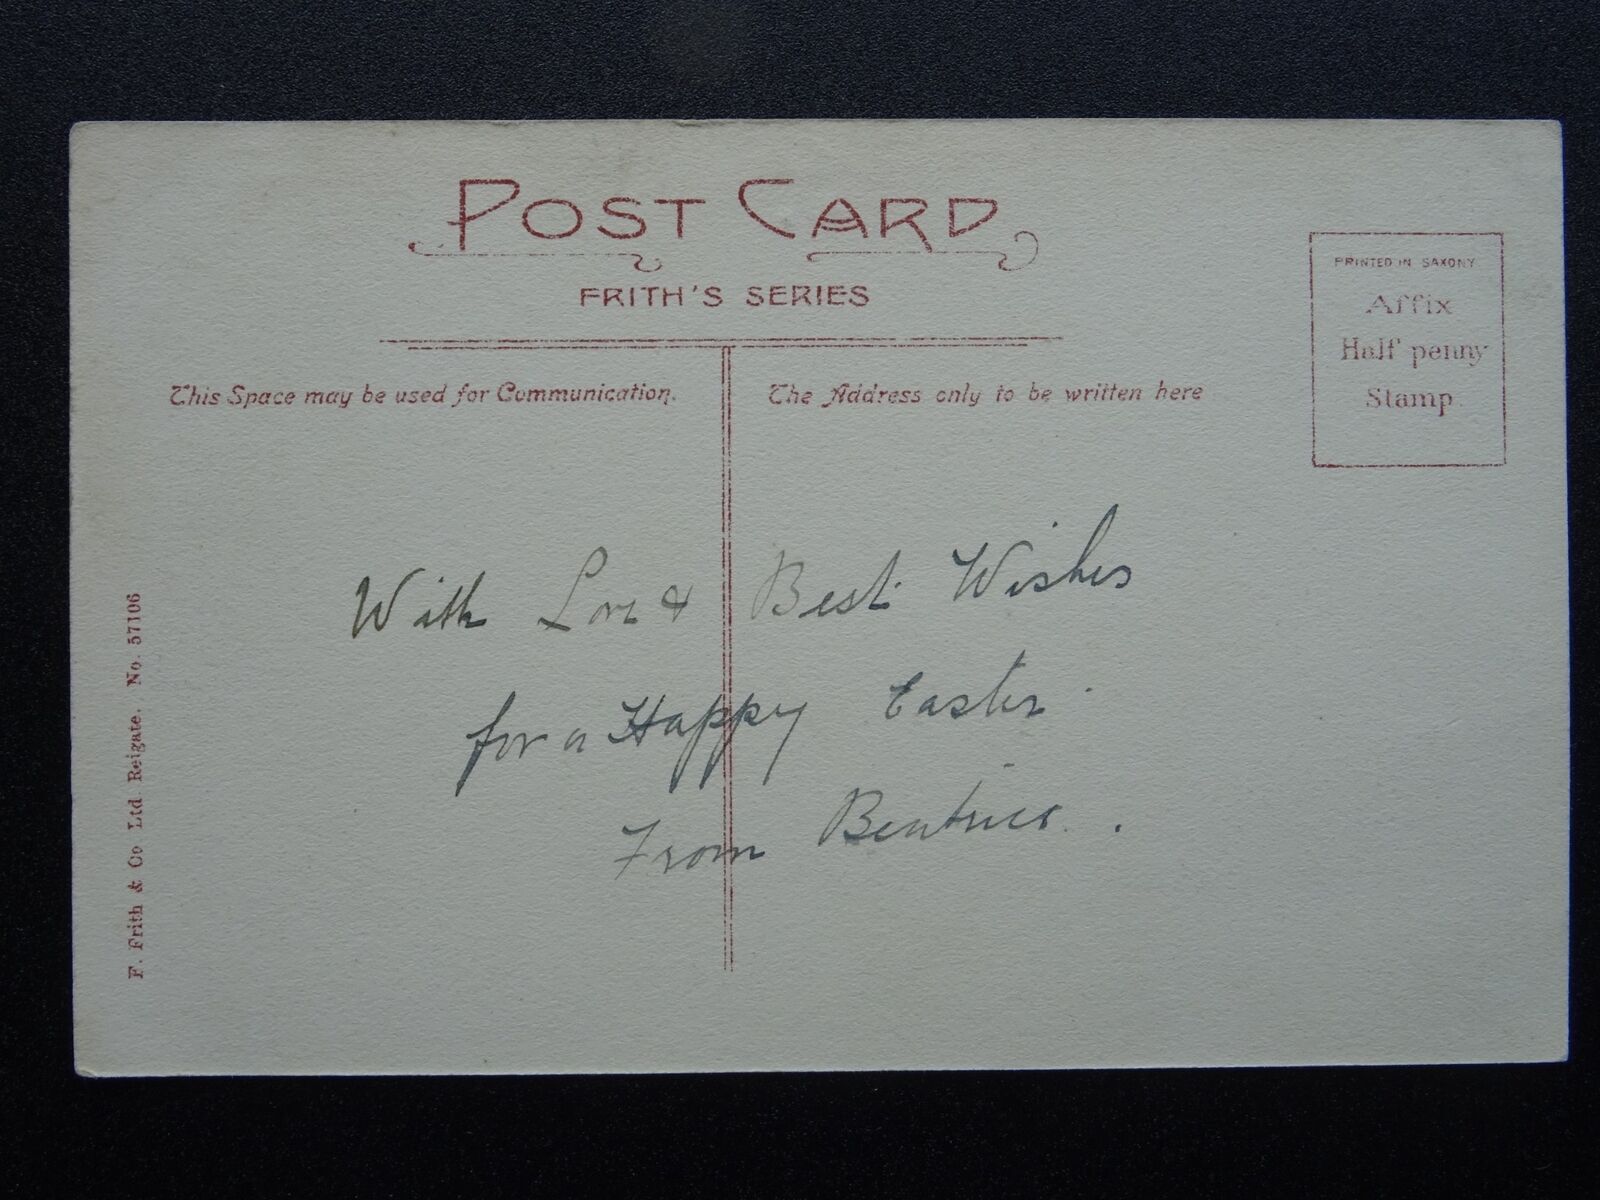 POST CARD
FRITH'S SERIES
PRINTED IN SAXONY
Affix
Half penny
Stamp
This Space may be used for Communication.
The Address only to be written here
With Love & Best Wishes
for a Happy Easter
From Beatrice.
F. Frith & Co Ltd Reigate. No. 57106